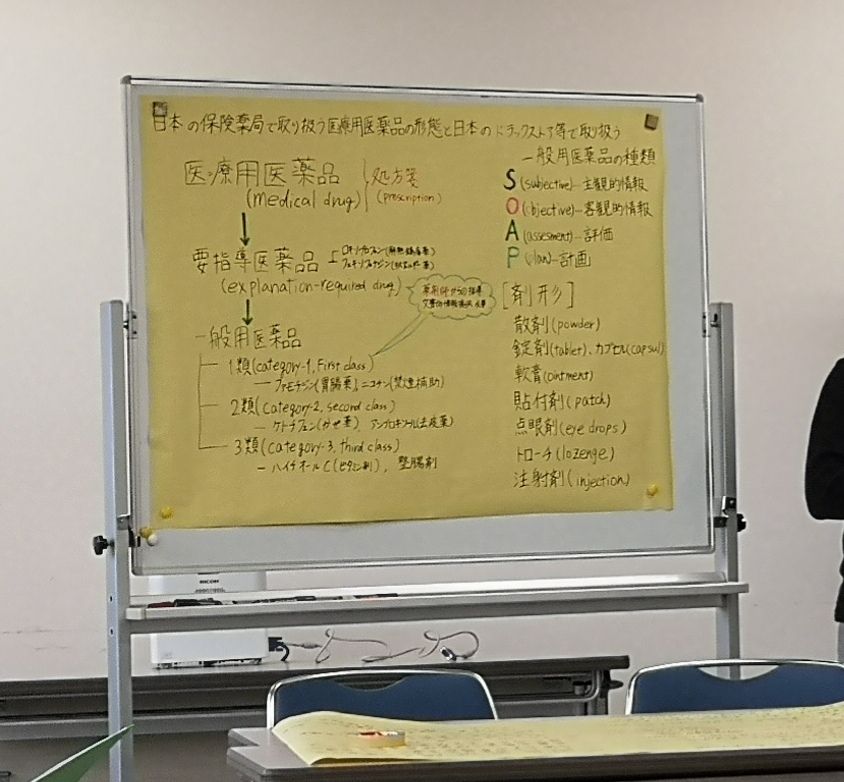 日本の保険薬局で取り扱う医療用医薬品の形態と日本のドラックストア等で取り扱う
一般用医薬品の種類
医療用医薬品
(medical drug)
処方箋
(prescription)
要指導医薬品
(explanation-required drug)
薬剤師からの指導
一般用医薬品
1類(category-1, First class)
ファモチジン(胃腸薬), ニコチン(禁煙補助)
2類(category-2, second class)
ケトチフェン(かぜ薬), アンブロキソール(去痰薬)
3類(category-3, third class)
ハイチオールC(ビタミン剤), 整腸剤
S (subjective)—主観的情報
O (objective)—客観的情報
A (assesment)—評価
P (plan)—計画
[剤形]
散剤(powder)
錠剤(tablet)、カプセル(capsul)
軟膏(ointment)
貼付剤(patch)
点眼剤(eye drops)
トローチ(lozenge)
注射剤(injection)
RICOH